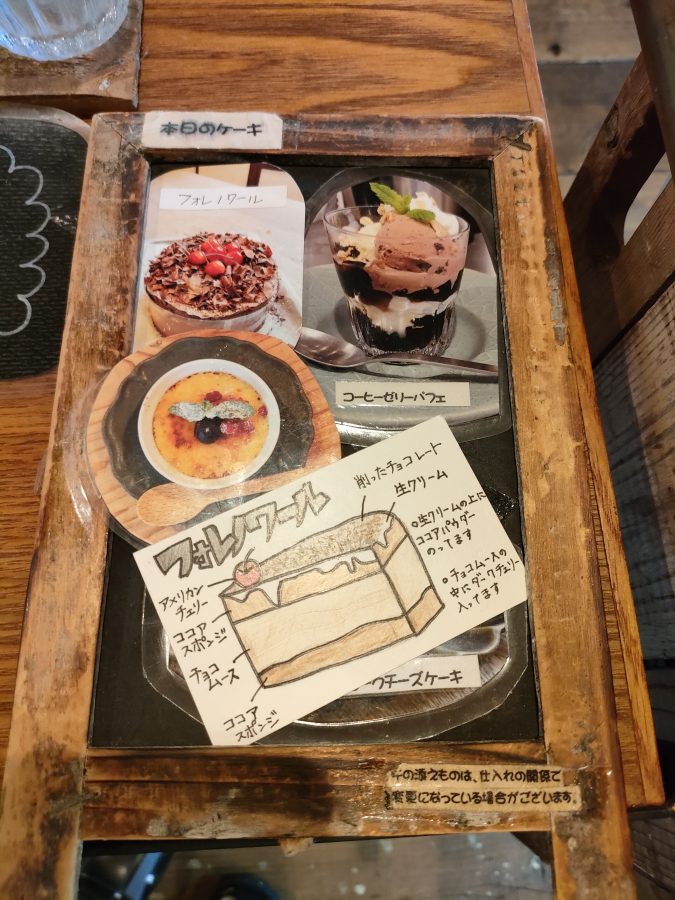 本日のケーキ
フォレノワール
コーヒーゼリーパフェ
フォレノワール
削ったチョコレート
生クリーム
○生クリームの上に
ココアパウダー
のってます
○チョコムースの
中にダークチェリー
入ってます
アメリカン
チェリー
ココア
スポンジ
チョコ
ムース
ココア
スポンジ
クチーズケーキ
の添えものは、仕入れの関係で
変更になっている場合がございます。